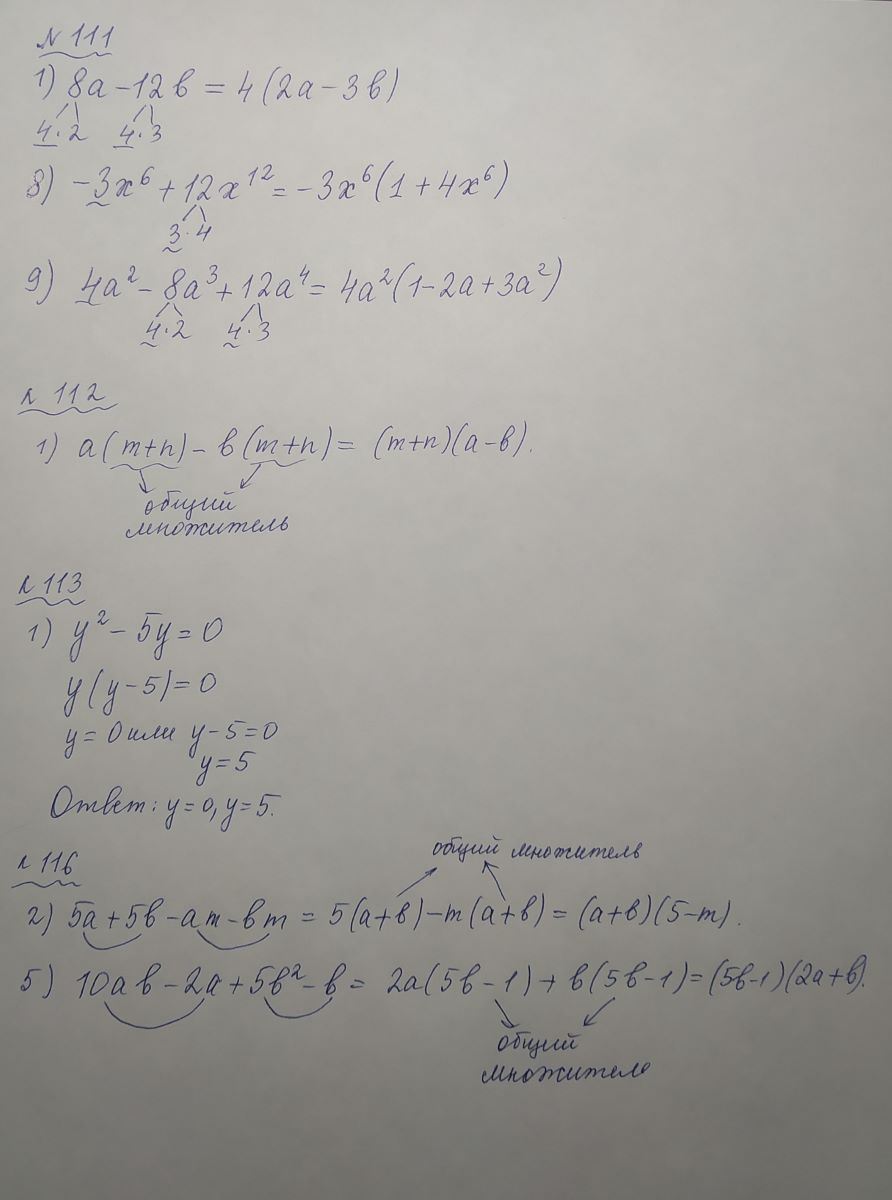 № 111
1) 8a - 12в = 4(2a - 3в)
4·2 4·3
8) -3x⁶ + 12x¹² = -3x⁶(1 + 4x⁶)
3·4
9) 4a² - 8a³ + 12a⁴ = 4a²(1 - 2a + 3a²)
4·2 4·3
№ 112
1) a(m+n) - в(m+n) = (m+n)(a-в).
общий
множитель
№ 113
1) y² - 5y = 0
y(y-5) = 0
y = 0 или y-5=0
y=5
Ответ: y=0, y=5.
№ 116
общий множитель
2) 5a + 5в - am - вm = 5(a+в) - m(a+в) = (a+в)(5-m).
5) 10aв - 2a + 5в² - в = 2a(5в - 1) + в(5в-1) = (5в-1)(2a+в).
общий
множитель